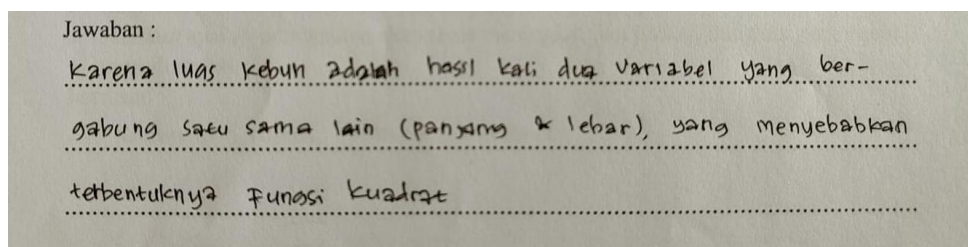 Jawaban :
Karena luas kebun adalah hasil kali dua variabel yang ber-
gabung satu sama lain (panjang & lebar), yang menyebabkan
terbentuknya Fungsi kuadrat